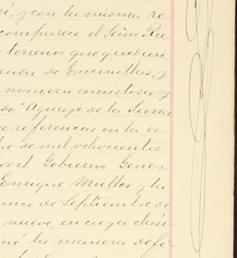 ni, y con la misma re-
comparece el Señor Ru-
terrenos que quedan
enda de Encinillas, y
manera amistosa y
do "Aguaje de la Sierra
referencia en la es-
bre de mil ochocientos
or el Gobierno Gene-
Enrique Müller y la
inco de Septiembre de
nueve, en cuya cláu
nó la manera defi-